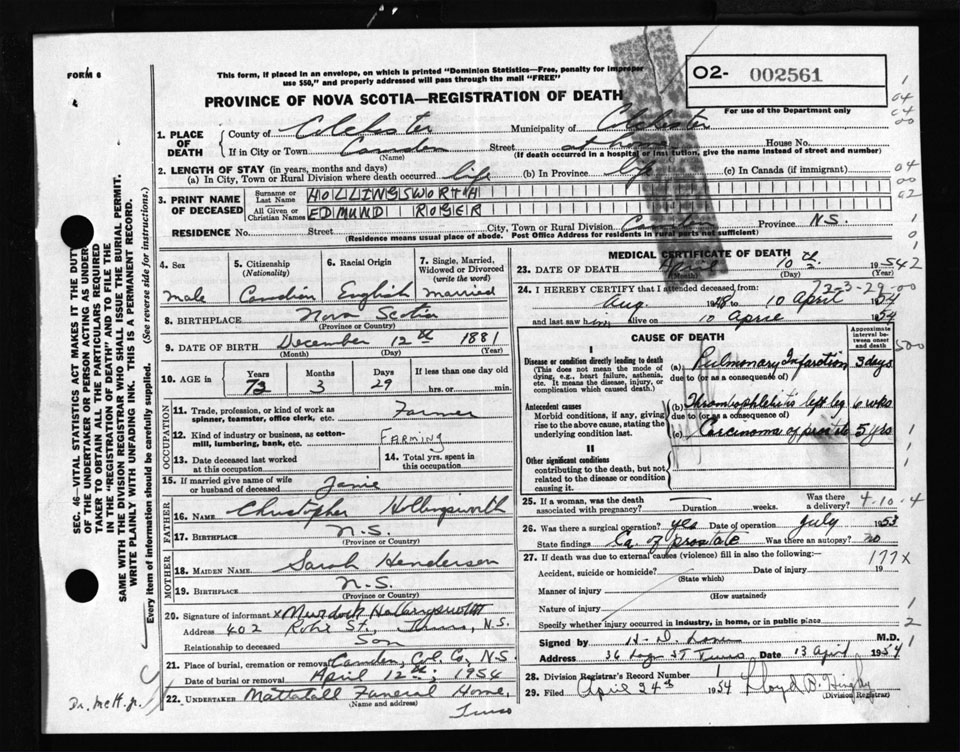 FORM 6
This form, if placed in an envelope, on which is printed "Dominion Statistics—Free, penalty for improper
use $50," and properly addressed will pass through the mail "FREE"
O2- 002561
PROVINCE OF NOVA SCOTIA—REGISTRATION OF DEATH
For use of the Department only
1. PLACE OF DEATH
County of Colchester Municipality of Colchester
If in City or Town Camden Street at home House No.
(Name) (If death occurred in a hospital or institution, give the name instead of street and number)
2. LENGTH OF STAY (in years, months and days)
(a) In City, Town or Rural Division where death occurred life (b) In Province life (c) In Canada (if immigrant)
3. PRINT NAME OF DECEASED
Surname or Last Name HOLLINGSWORTH
All Given or Christian Names EDMUND ROGER
RESIDENCE No. Street City, Town or Rural Division Camden Province N.S.
(Residence means usual place of abode. Post Office Address for residents in rural parts not sufficient)
SEC. 46—VITAL STATISTICS ACT MAKES IT THE DUTY
OF THE UNDERTAKER OR PERSON ACTING AS UNDER-
TAKER TO OBTAIN ALL THE PARTICULARS REQUIRED
IN THE "REGISTRATION OF DEATH" AND TO FILE THE
SAME WITH THE DIVISION REGISTRAR WHO SHALL ISSUE THE BURIAL PERMIT.
WRITE PLAINLY WITH UNFADING INK. THIS IS A PERMANENT RECORD.
Every item of information should be carefully supplied. (See reverse side for instructions.)
4. Sex
male
5. Citizenship
(Nationality)
Canadian
6. Racial Origin
English
7. Single, Married,
Widowed or Divorced
(write the word)
married
8. BIRTHPLACE Nova Scotia
(Province or Country)
9. DATE OF BIRTH December 12th 1881
(Month) (Day) (Year)
10. AGE in
Years Months Days If less than one day old
72 3 29 hrs. or min.
OCCUPATION
11. Trade, profession, or kind of work as
spinner, teamster, office clerk, etc. Farmer
12. Kind of industry or business, as cotton-
mill, lumbering, bank, etc. FARMING
13. Date deceased last worked
at this occupation
14. Total yrs. spent in
this occupation
15. If married give name of wife
or husband of deceased Janie
FATHER
16. NAME Christopher Hollingsworth
17. BIRTHPLACE N.S.
(Province or Country)
MOTHER
18. MAIDEN NAME Sarah Henderson
19. BIRTHPLACE N.S.
(Province or Country)
20. Signature of informant x Murdock Hollingsworth
Address 402 St., Truro, N.S.
Relationship to deceased Son
21. Place of burial, cremation or removal Camden, Col. Co., N.S.
Date of burial or removal April 12th, 1954
22. UNDERTAKER Mattatall Funeral Home,
(Name and address)
Truro
MEDICAL CERTIFICATE OF DEATH
23. DATE OF DEATH April 10th 1954
(Month) (Day) (Year)
24. I HEREBY CERTIFY that I attended deceased, from:
Aug. 1948 to 10 April 1954
and last saw him alive on 10 April 1954
CAUSE OF DEATH
Approximate interval between onset and death
I
Disease or condition directly leading to death
(This does not mean the mode of
dying, e.g., heart failure, asthenia,
etc. It means the disease, injury, or
complication which caused death.)
(a) Pulmonary Infarction 3 days
due to (or as a consequence of)
Antecedent causes
Morbid conditions, if any, giving
rise to the above cause, stating the
underlying condition last.
(b) Thrombophlebitis left leg 6 wks
due to (or as a consequence of)
(c) Carcinoma of prostate 5 yrs
II
Other significant conditions
contributing to the death, but not
related to the disease or condition
causing it.
25. If a woman, was the death
associated with pregnancy? Duration weeks. Was there a delivery?
4-10-4
26. Was there a surgical operation? yes Date of operation July 1953
State findings Ca. of prostate Was there an autopsy? no
27. If death was due to external causes (violence) fill in also the following:—
177X
Accident, suicide or homicide? Date of injury 19
(State which)
Manner of injury
(How sustained)
Nature of injury
Specify whether injury occurred in industry, in home, or in public place
Signed by M.D.
Address 36 St Truro Date 13 April 1954
28. Division Registrar's Record Number 1
29. Filed April 24th 1954 Lloyd
(Division Registrar)